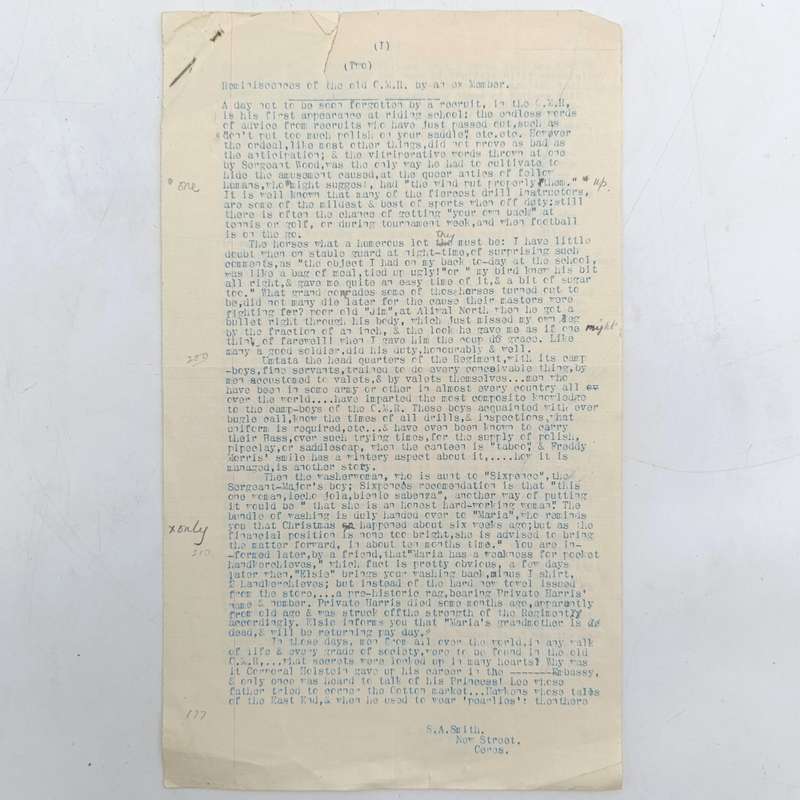 (I)
(Two)
Reminiscences of the old C.M.R. by an ex Member.
A day not to be soon forgotten by a recruit, in the C.M.R,
is his first appearance at riding school: the endless words
of advice from recruits who have just passed out,such as
"don't put too much polish on your saddle", etc.etc. However
the ordeal,like most other things,did not prove as bad as
the anticipation; & the vitriperative words thrown at one
by Sergeant Wood,was the only way he had to cultivate,to
hide the amusement caused,at the queer antics of fellow
° one humans,who °might suggest, had "the wind put properly them." * up.
It is well known that many of the fiercest drill instructors,
are some of the mildest & best of sports when off duty:still
there is often the chance of getting "your own back" at
tennis or golf, or during tournament week,and when football
is on the go.
The horses what a humerous lot they must be: I have little
doubt when on stable guard at night-time,of surprising such
comments,as "the object I had on my back to-day at the school,
was like a bag of meal,tied up ugly!"or " my bird knew his bit
all right,& gave me quite an easy time of it,& a bit of sugar
too." What grand comrades some of those horses turned out to
be,did not many die later for the cause their masters were
fighting for? poor old "Jim",at Aliwal North when he got a
bullet right through his body, which just missed my own leg
by the fraction of an inch, & the look he gave me as if one might
think of farewell! when I gave him the coup de grace. Like
many a good soldier,did his duty,honourably & well.
250 Umtata the head quarters of the Regiment,with its camp
-boys,fine servants,trained to do every conceivable thing,by
men accustomed to valets,& by valets themselves...men who
have been in some army or other in almost every country all ov
over the world....have imparted the most composite knowledge
to the camp-boys of the C.M.R. These boys acquainted with ever
bugle call,know the times of all drills,& inspections,what
uniform is required,etc...& have even been known to carry
their Bass,over such trying times,for the supply of polish,
pipeclay,or saddlesoap, when the canteen is "taboo", & Freddy
Morris' smile has a wintery aspect about it,....how it is
managed,is another story.
Then the washerwoman, who is aunt to "Sixpence",the
Sergeant-Major's boy; Sixpences recomendation is that "this
one woman,iecho jola,bienlo sabenza", another way of putting
it would be " that she is an honest hard-working woman". The
bundle of washing is duly handed over to "Maria",who reminds
x only you that Christmas happened about six weeks ago;but as the
financial position is none too bright,she is advised to bring
210 the matter forward, in about ten months time." You are in-
-formed later,by a friend,that"Maria has a weakness for pocket
handkerchieves," which fact is pretty obvious, a few days
later when,"Elsie" brings your washing back,minus I shirt,
2 handkerchieves; but instead of the hard new towel issued
from the store,...a pre-historic rag,bearing Private Harris'
name & number. Private Harris died some months ago,apparently
from old age & was struck offthe strength of the Regiment
accordingly. Elsie informs you that "Maria's grandmother is
dead,& will be returning pay day,"
In those days, men from all over the world,in any walk
of life & every grade of society,were to be found in the old
C.M.R,...what secrets were locked up in many hearts! Why was
it Corporal Holstein gave up his career in the -------Embassy,
& only once was heard to talk of his Princess! Lee whose
father tried to corner the Cotton market...Harkens whose tales
177 of the East End,& when he used to wear 'pearlies': thenthere
S.A.Smith.
New Street.
Ceres.